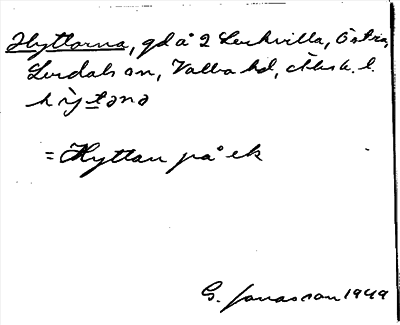 Hyttorna, gd å 2 Lockvilla, Östra,
Lerdals sn, Valbo hd, Älvsb. l.
hỳtəna
= Hyttan på ek
G. Jonasson 1949